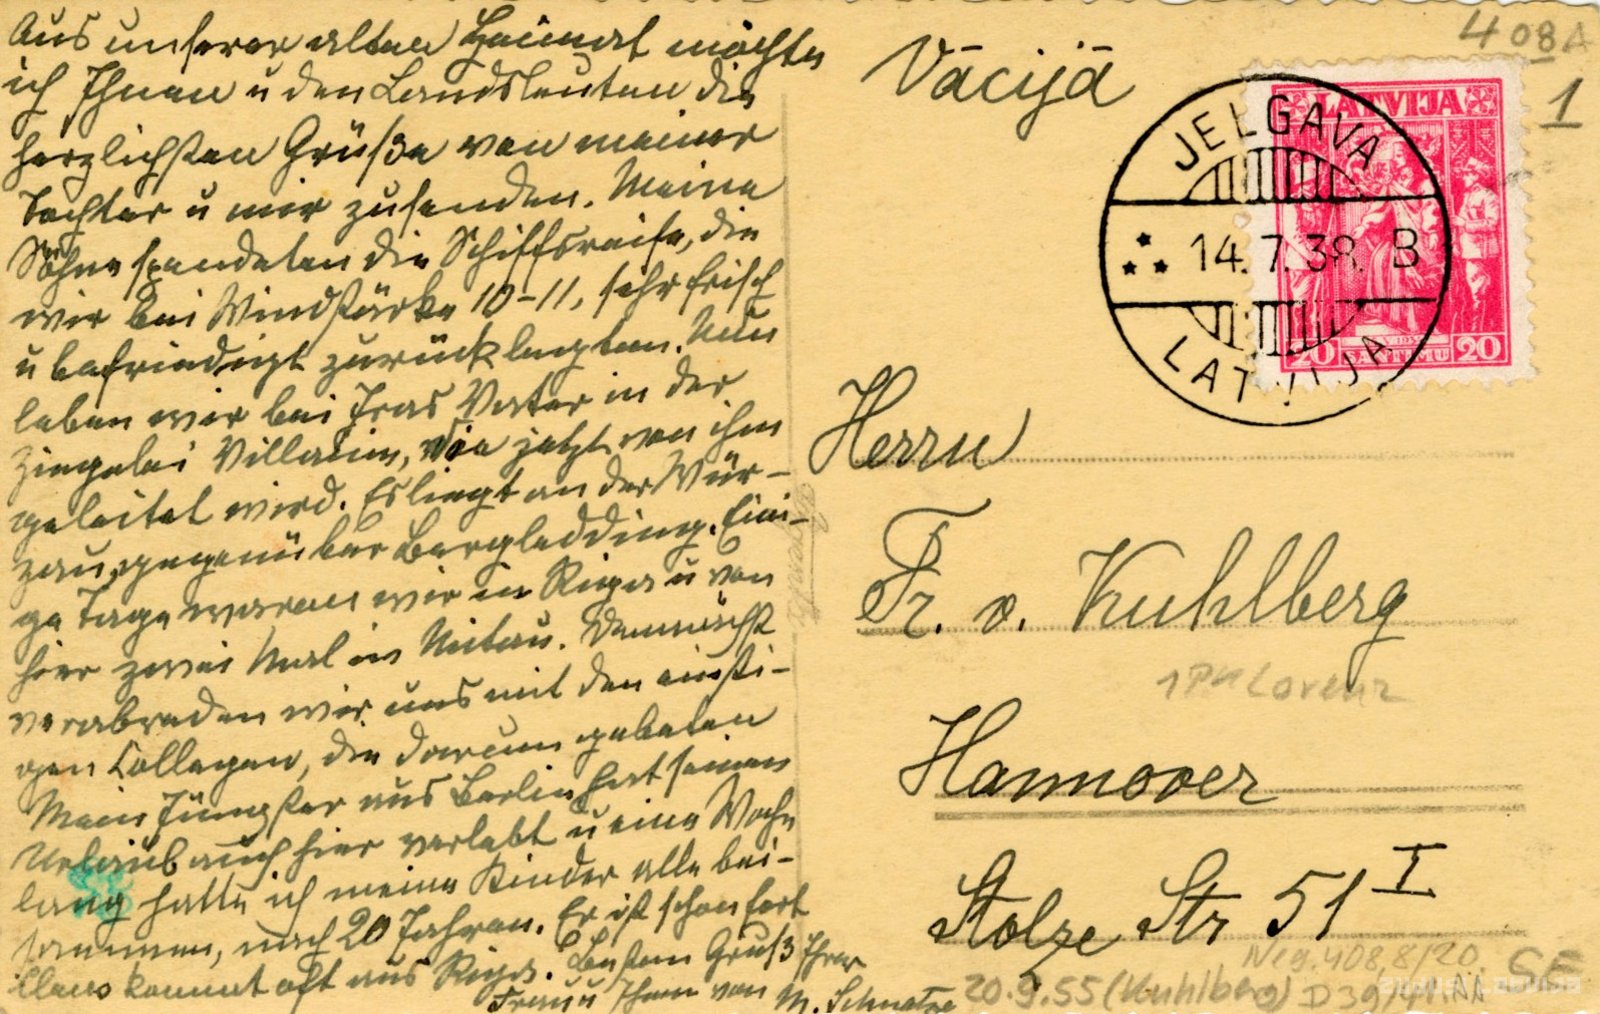 Aus unserer alten Heimat möchte
ich Ihnen u den Landsleuten die
herzlichsten Grüße von meiner
Tochter u mir zusenden. Meine
Söhne spendeten die Schiffsreise, die
wir bei Windstärke 10-11, sehr frisch
u befriedigt zurücklegten. Nun
leben wir bei Iras Vater in der
Ziegelei, die jetzt von ihm
geleitet wird. Es liegt an der Wür-
zau, gegenüber Eini-
ge Tage waren wir in Riga u von
hier zwei Mal in Mitau. Demnächst
verabreden wir uns mit den einsti-
gen Collegen, die darum gebeten
Mein Jüngster aus Berlin hat seinen
Urlaub auch hier verlebt u eine Woche
lang hatte ich meine Kinder alle bei-
sammen, nach 20 Jahren. Er ist schon fort
Claus kommt oft aus Riga. Besten Gruß Ihrer
Frau u Ihnen von M. Schnatze
Vācijā
408A
1
LATVIJA
20 SANTIMU 20
JELGAVA
14.7.38. B
LATVIJA
Herrn
Fr. v. Kuhlberg
Hannover
Stolze Str 51 I
Neg. 408,8/20
20.9.55 (Kuhlberg) D39/41.NN